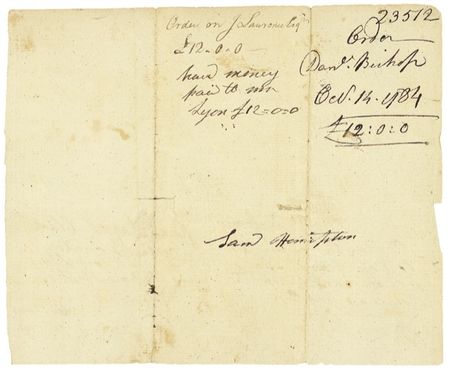 Order on J Lawrence Esqr
£12-0-0
hard money
paid to mr
Lyon £12=0=0
23512
Order
Danl. Bishop
Oct. 14-1784
£12:0:0
Saml Hampton